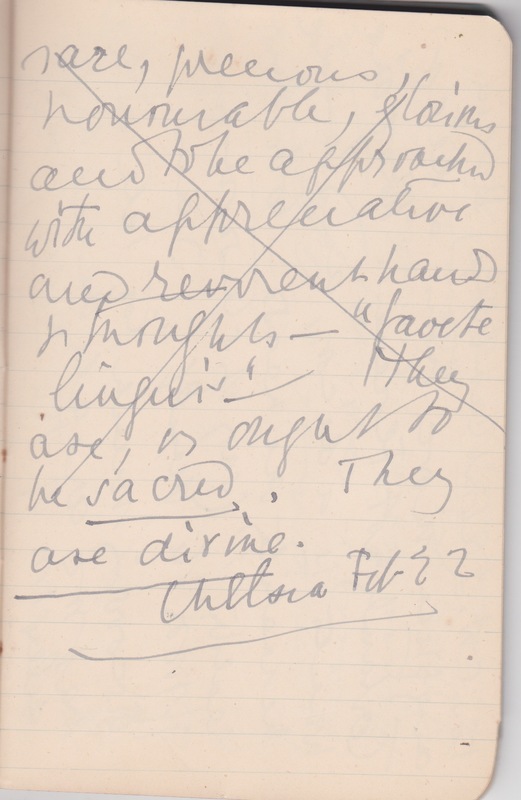 rare, precious,
honourable, glorious
and to be approached
with appreciative
and reverent hand
& thoughts — "favete
linguis" They
are, or ought to
be sacred. They
are divine.
Chelsea Feb 22